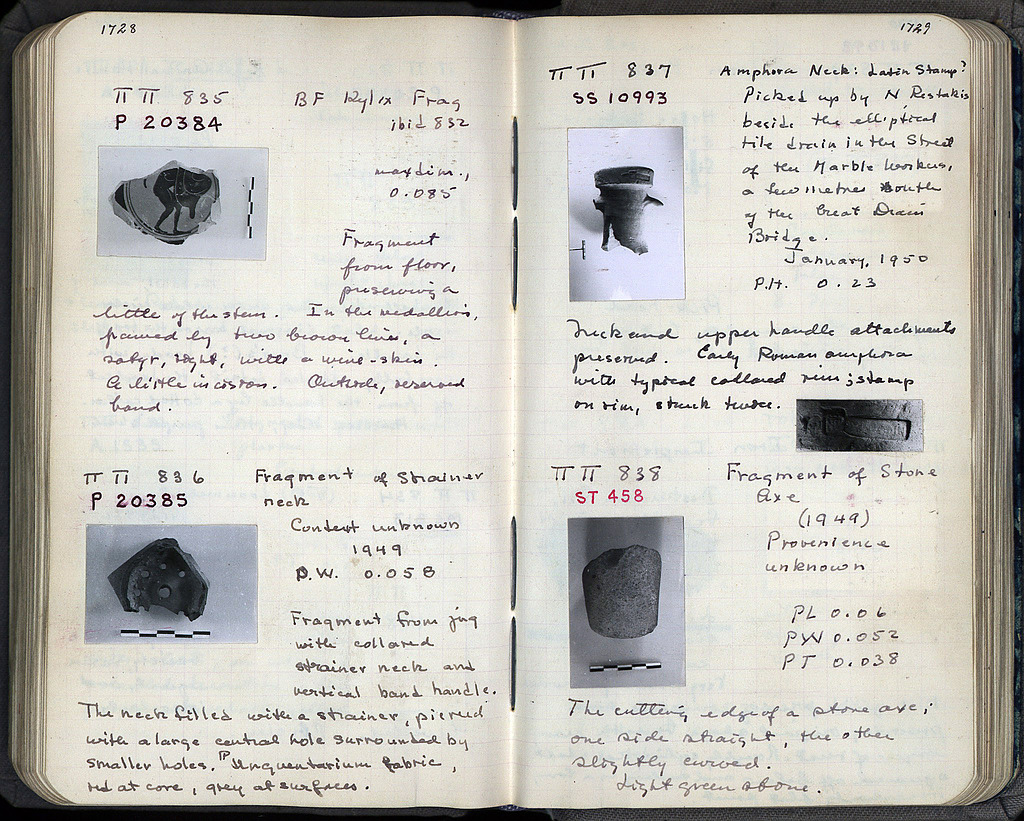 1728
ΠΠ 835
P 20384
BF Kylix Frag
ibid 832
max dim.,
0.085
Fragment
from floor,
preserving a
little of the stem. In the medallion,
framed by two brown lines, a
satyr, right, with a wine-skin.
A little incision. Outside, reserved
band.
ΠΠ 836
P 20385
Fragment of Strainer
neck
Context unknown
1949
P.W. 0.058
Fragment from jug
with collared
strainer neck and
vertical band handle.
The neck filled with a strainer, pierced
with a large central hole surrounded by
smaller holes. Unguentarium fabric,
red at core, grey at surfaces.
1729
ΠΠ 837
SS 10993
Amphora Neck: Latin Stamp?
Picked up by N. Restakis
beside the elliptical
tile drain in the Street
of the Marble Workers,
a few metres South
of the Great Drain
Bridge.
January, 1950
P.H. 0.23
Neck and upper handle attachments
preserved. Early Roman amphora
with typical collared rim; stamp
on rim, struck twice.
ΠΠ 838
ST 458
Fragment of Stone
Axe
(1949)
Provenience
unknown
PL 0.06
PW 0.052
PT 0.038
The cutting edge of a stone axe;
one side straight, the other
slightly curved.
Light green stone.